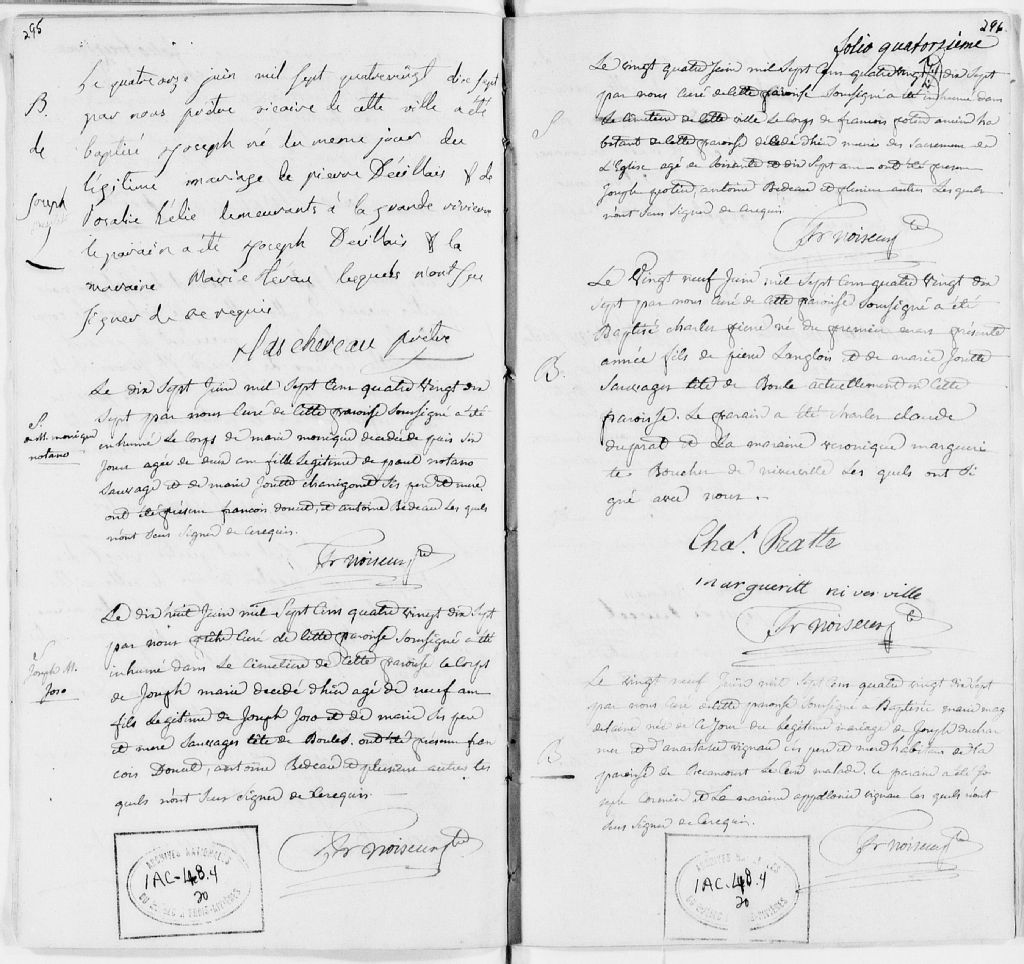 295
B.
de
Joseph
Le quatorze juin mil sept quatrevingt dixe sept
par nous prêtre vicaire de cette ville a été
baptisé Joseph né du meme jour du
légitime mariage de pierre Désillais & de
Rosalie Hélie demeurants à la grande riviere
le parain a été Joseph Désillais & la
maraine Marie Hevau lesquels n'ont su
signer de ce requis
prêtre
S.
M. monique
notano
Le dix Sept Juin mil Sept Cent quatre Vingt dix
Sept par nous Curé de Cette paroisse Soussigné a été
inhumé Le Corps de marie monique decedée depuis Six
Jour agée de deux an fille Legitime de paul notano
Sauvage et de marie Josette Ses pere et mere.
ont été présens francois doucet, et antoine Bedeau Les quels
n'ont Seus Signer de Cerequis.
Fr noiseux ptre
S
Joseph M.
Joso
Le dix huit Juin mil Sept Cens quatre Vingt dix Sept
par nous ptrê Curé de Cette paroisse Soussigné a été
inhumé dans Le Cimetiere de Cette paroisse Le Corps
de Joseph marie decedé d'hier agé de neuf ans
fils Legitime de Joseph Joso et de marie Ses pere
et mere Sauvages tête de Boules. ont été présens fran
cois Doucet, antoine Bedeau et plusieurs autres les
quels n'ont Seus Signer de Cerequis.
Fr noiseux ptre
ARCHIVES NATIONALES
1AC-48.4
20
DU QUÉBEC À TROIS-RIVIÈRES
296
folio quatorzieme
S.
Le Vingt quatre Juin mil Sept Cens quatre Vingt dix Sept
par nous Curé de Cette paroisse Soussigné a été inhumé dans
Le Cimetiere de Cette ville Le Corps de francois potier ancien ha
bitant de Cette paroisse décédé d'hier munis des Sacremens de
L'Eglise agé de Soixante et dix Sept ans ont été présens
Joseph potier antoine Bedeau et plusieurs autres Les quels
n'ont Seus Signer de Cerequis
Fr noiseux ptre
B.
Le Vingt neuf Juin mil Sept Cens quatre Vingt dix
Sept par nous Curé de Cette paroisse Soussigné a été
Baptisé charles pierre né du premier mars présente
année fils de pierre Langlois et de marie Josette
Sauvages tête de Boule actuellement en Cette
paroisse. Le parain a été charles claude
du prat et La maraine veronique margueri
te Boucher de niverville Les quels ont Si
gné avec nous.
Chas. Pratte
margueritt ni ver ville
Fr noiseux ptre
B
Le Vingt neuf Juin mil Sept Cens quatre vingt dix Sept
par nous Curé de Cette paroisse Soussigné a Baptisée marie mag
delaine née de Ce Jour du Legitime mariage de Joseph duchar
mes et d'anastasie vignau Ses pere et mere habitans de La
paroisse de Becancourt Le Curé malade. le parain a été Jo
seph Cormier et La maraine appollonie vignau Les quels n'ont
Seus Signer de Cerequis.
Fr noiseux ptre
1AC-48.4
20
DU QUÉBEC À TROIS-RIVIÈRES